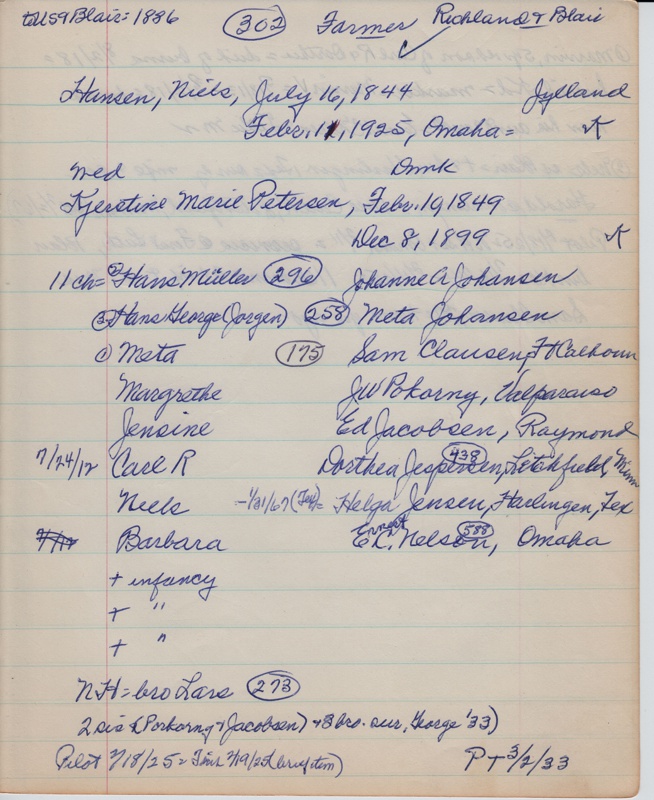 to US & Blair = 1886 (302) Farmer Richland & Blair
Hansen, Niels, July 16, 1844 Jylland
Febr. 11, 1925, Omaha =
wed Dmk
Kjerstine Marie Petersen, Febr. 19, 1849
Dec 8, 1899
11 ch = (2) Hans Müller (296) Johanne A Johansen
(3) Hans George (Jorgen) (258) Meta Johansen
(1) Meta (175) Sam Clausen, Ft Calhoun
Margrethe JW Pokorny, Valparaiso
Jensine Ed Jacobsen, Raymond
7/24/12 Carl R Dorthea Jespersen, (438) Litchfield, Minn
Niels - 1/31/67 (Tex) = Helga Jensen, Harlingen, Tex
Barbara E R. Ernest Nelson, (588) Omaha
+ infancy
+ "
+ "
NH = bro Lars (273)
2 sis (Porkorny & Jacobsen) & 3 bro. sur, George '33)
Pilot 2/18/25 = 2/19/25
PT 3/2/33